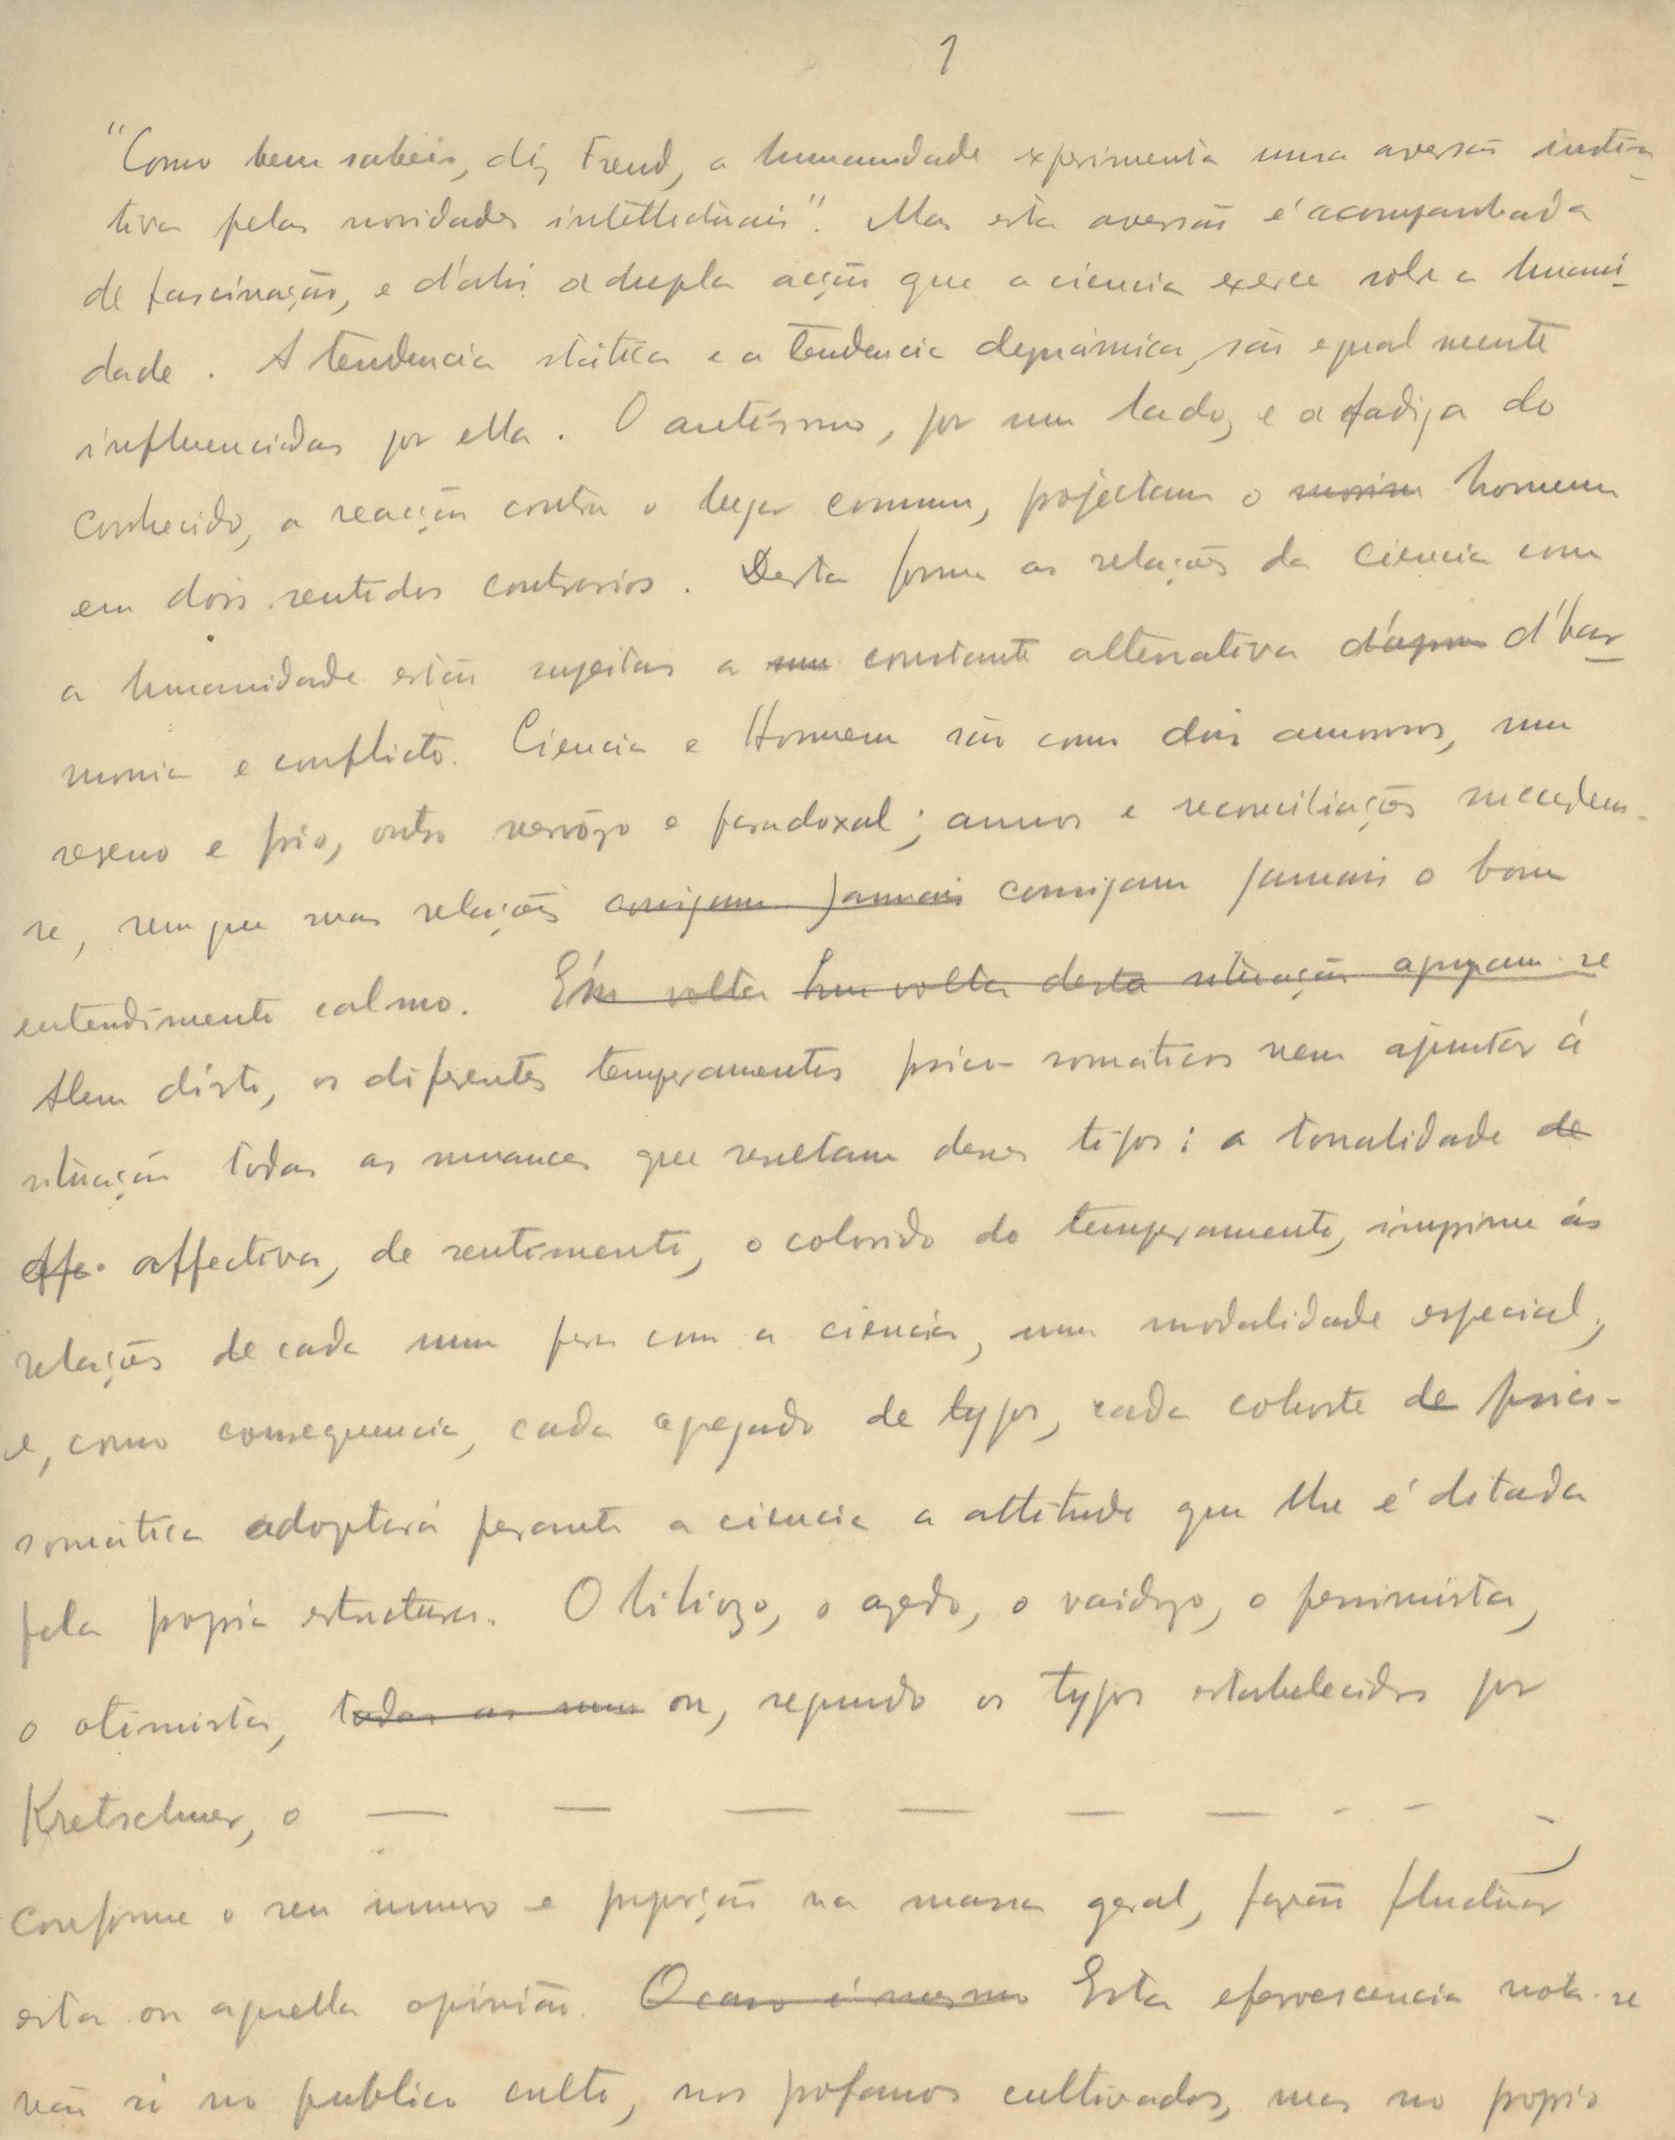 1
"Como bem sabeis, diz Freud, a humanidade experimenta uma aversão instin-
tiva pelas novidades intellectuais". Mas esta aversão é acompanhada
de fascinação, e d'ahi a dupla acção que a ciencia exerce sobre a humani-
dade. A tendencia statica e a tendencia dynamica, são egualmente
influenciadas por ella. O autismo, por um lado, e a fadiga do
conhecido, a reacção contra o lugar commum, projectam o homem
em dois sentidos contrarios. Desta forma as relações da ciencia com
a humanidade estão sujeitas a constante alternativa d'har-
monia e conflicto. Ciencia e Homem são como dois amorosos, um
sereno e frio, outro nervozo e paradoxal; amuos e reconciliações succedem-
se, sem que suas relações consigam jamais consigam jamais o bom
entendimento calmo. Em volta Em volta desta situação agrupam-se
Alem disto, os diferentes temperamentos psico-somaticos vem ajuntar á
situação todas as nuances que resultam desses tipos: a tonalidade de
affe affectiva, de sentimento, o colorido do temperamento, imprime ás
relações de cada um para com a ciencia, uma modalidade especial,
e, como consequencia, cada apegado de typos, cada cohorte de psico-
somatica adoptará perante a ciencia a attitude que lhe é ditada
pela propria estructura. O litiozo, o azedo, o vaidozo, o pessimista,
o otimista, todas as ou, segundo os typos estabelecidos por
Kretschmer, o — — — — — — - - -
conforme o seu numero e proporção na massa geral, farão fluctuar
esta ou aquella opinião. O caso é mesmo Esta efervescencia nota-se
não só no publico culto, nos profanos cultivados, mas no proprio